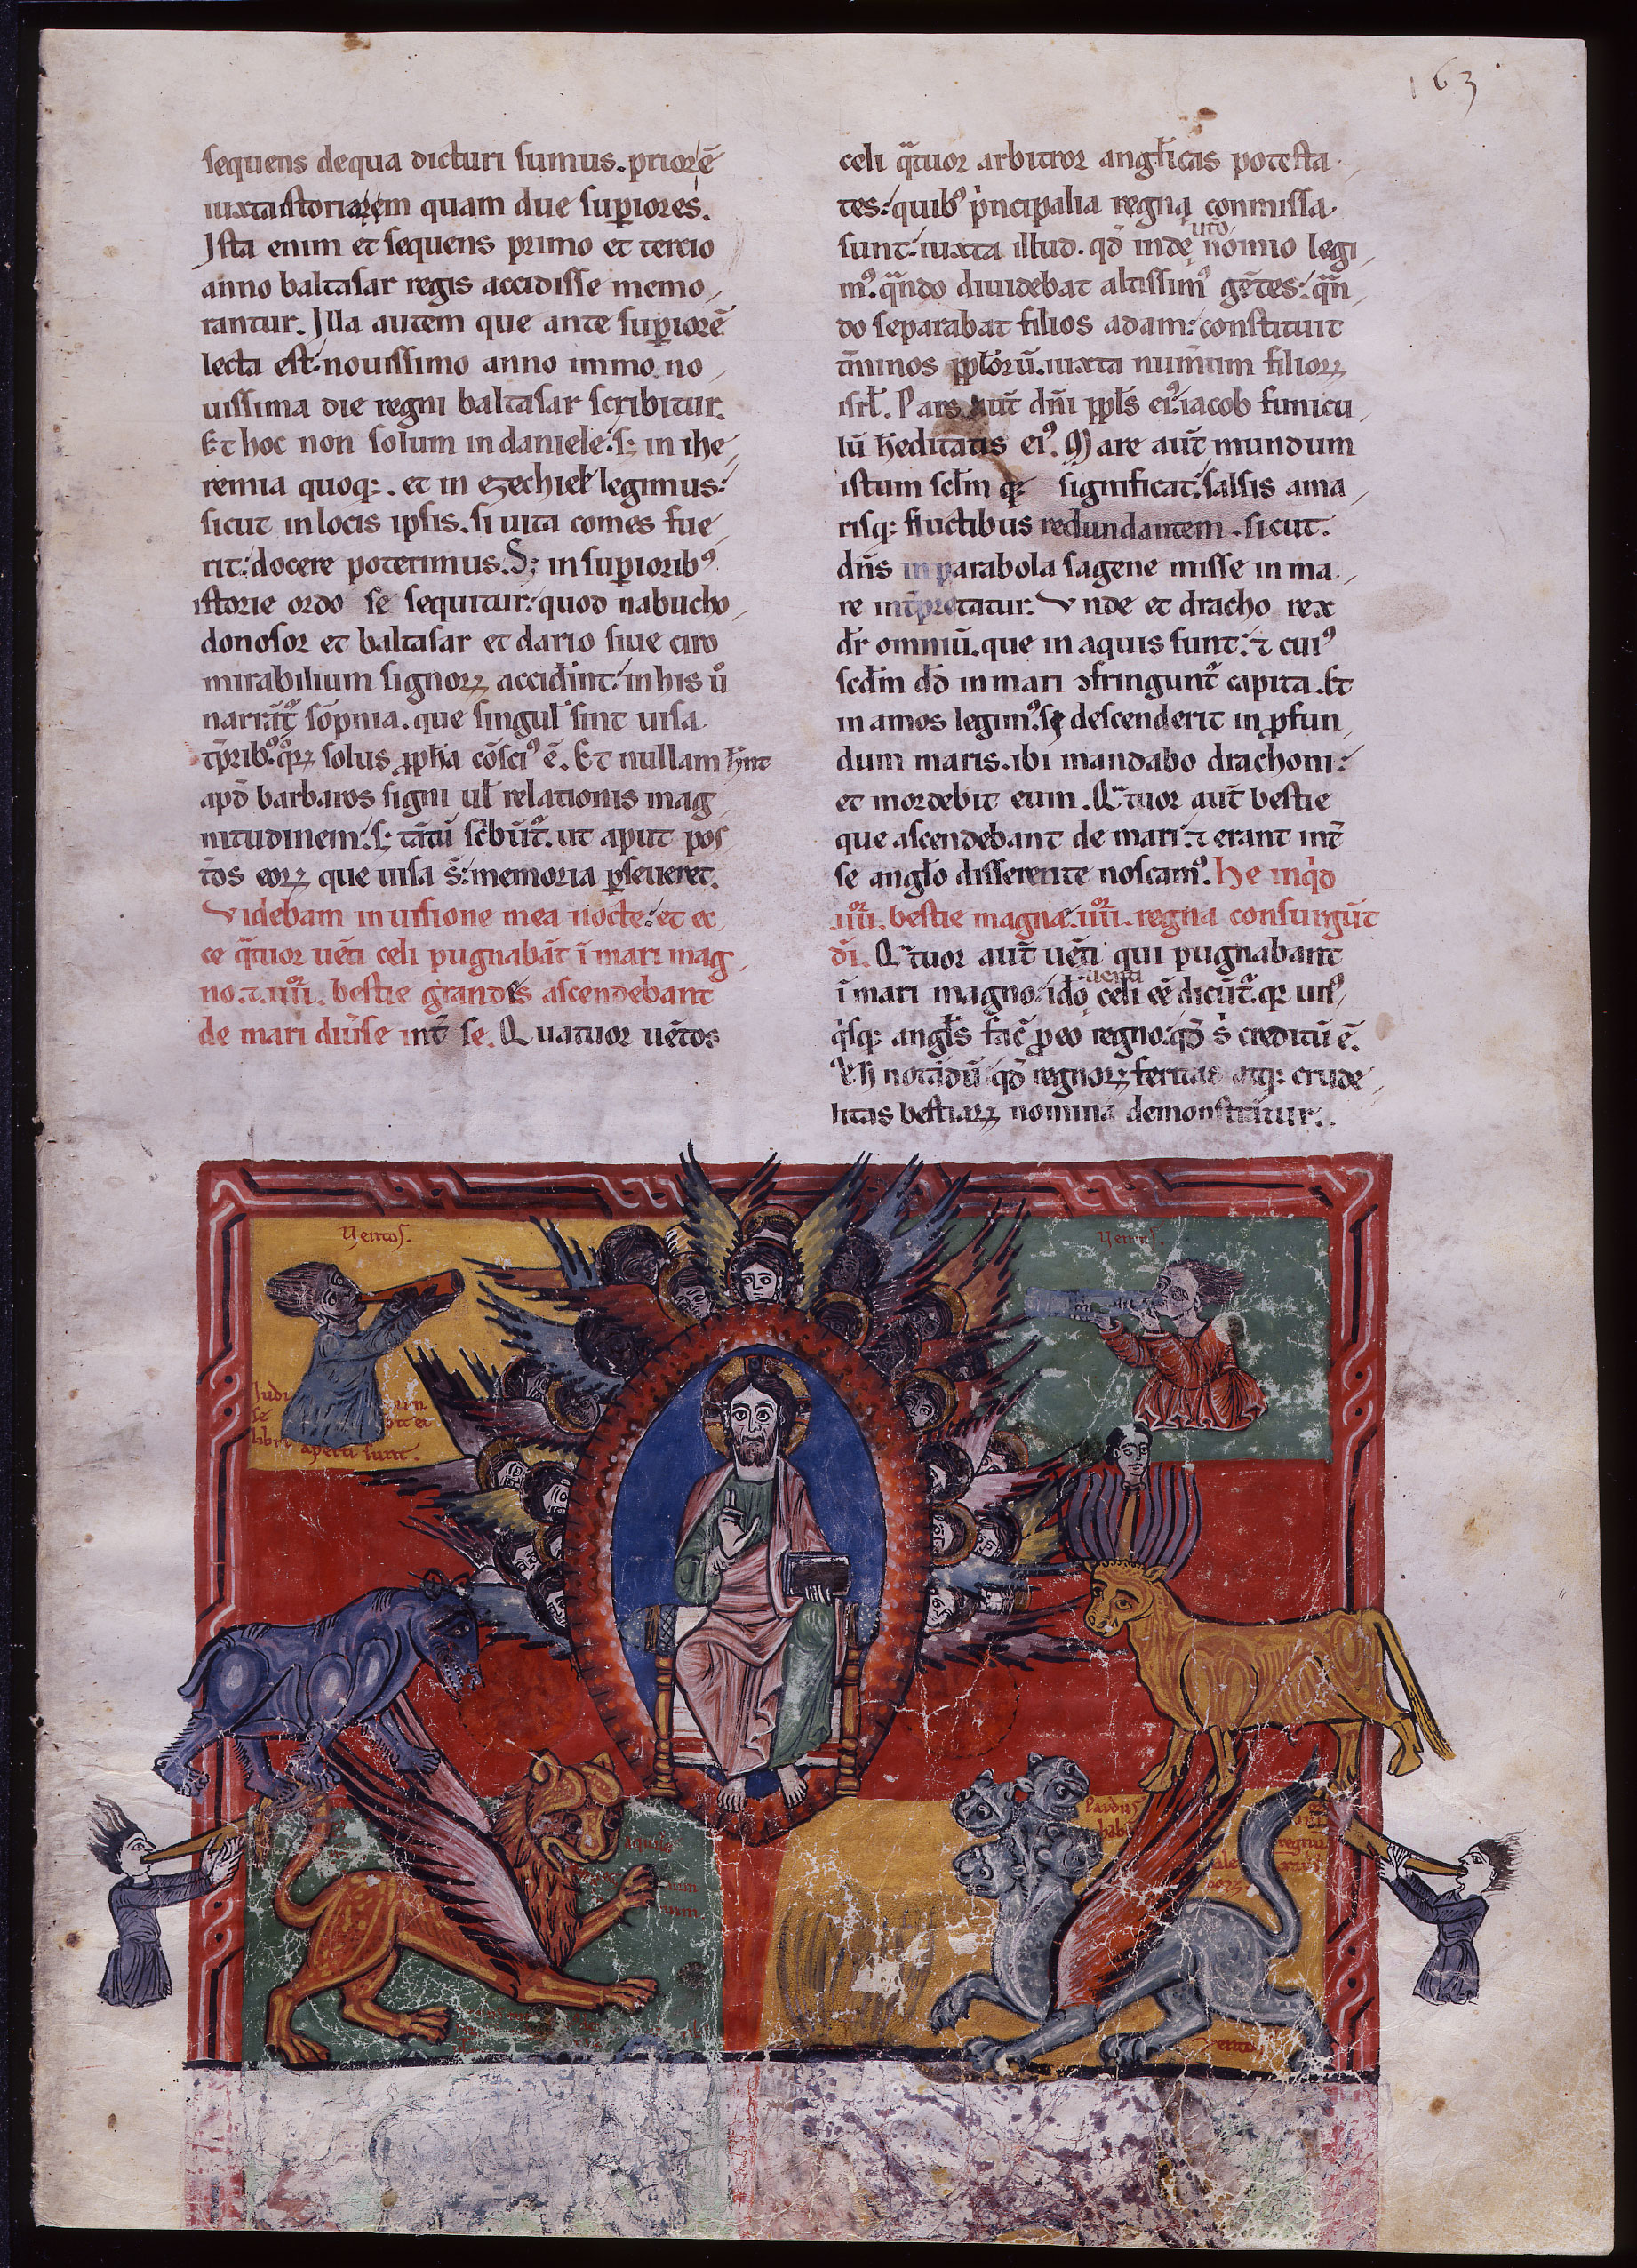 163
sequens dequa dicturi sumus. priorē
iuxta storiarem quam due sup̄iores.
Ista enim et sequens primo et tercio
anno baltasar regis accidisse memo,
rantur. Illa autem que ante sup̄iorē
lecta est: nouissimo anno immo no,
uissima die regni baltasar scribitur.
Et hoc non solum in daniele: s; in ihe,
remia quoq;. et in ezechiel legimus:
sicut in locis ipsis. si uita comes fue
rit: docere poterimus. S; in sup̄iorib⁹
istorie ordo se sequitur: quod nabucho,
donosor et baltasar et dario siue ciro
mirabilium signoꝝ accider̄int: in his ů
narrāt᷑ sōpnia. que singul̄ sint uisa
tp̄rib⁹: qͦꝝ solus ꝓph̄a cōsci⁹ ē. Et nullam h̄nt
apd̄ barbaros signi ul̄ relationis mag
nitudinem: s; tātū sc̄būt᷑. ut aput pos
t̄os eoꝝ que uisa s̄: memoria ꝑseueret.
Videbam in uisione mea nocte: et ec,
ce qͣtuor uēti celi pugnabāt ī mari mag,
no. ⁊ .iiiior. bestie grandes ascendebant
de mari diūse int̄ se. Quatuor uētos
celi qͣtuor arbitror angl̄icas potesta,
tes: quib⁹ pͥncipalia regna conmissa
sunt: iuxta illud. qd̄ in deutͦnomio legi,
m⁹. qͣndo diuidebat altissim⁹ gētes: qͣn,
do separabat filios adam: constituit
t̄minos ppl̄orū. iuxta num̄um filioꝝ
isrl̄. Pars aut̄ dn̄i ppl̄s ei⁹: iacob funicu,
lū h̄editatis ei⁹. Mare aut̄ mundum
istum scl̄m q; significat: salsis ama,
risq; fluctibus redundantem. sicut
dn̄s in parabola sagene misse in ma,
re int̄pretatur. Vnde et dracho rex
dr̄ omniū. que in aquis sunt: ⁊ cui⁹
scd̄m dd̄ in mari ɔfringunt᷑ capita. Et
in amos legim⁹. si descenderit in ꝓfun,
dum maris. ibi mandabo drachoni:
et mordebit eum. Qͣtuor aut̄ bestie
que ascendebant de mari: ⁊ erant int̄
se angl̄o disserente noscam⁹. He inqͥd
.iiiior. bestie magne .iiiior. regna consurgūt
dī. Qͣtuor aut̄ uēti qui pugnabant
ī mari magno: idͦo uenti celi eē dicūt᷑. q; un⁹,
qͥsq; angl̄s fac̄ ꝓ eo regno: qd̄ sͥ creditū ē.
Et h notādū qd̄ regnoꝝ feritas atq; crude,
litas bestiaꝝ nomina demonstratur.
Uentos.
Uentus.
libri aperti sunt.
Pardus
habu
regnu
aquile
Uento